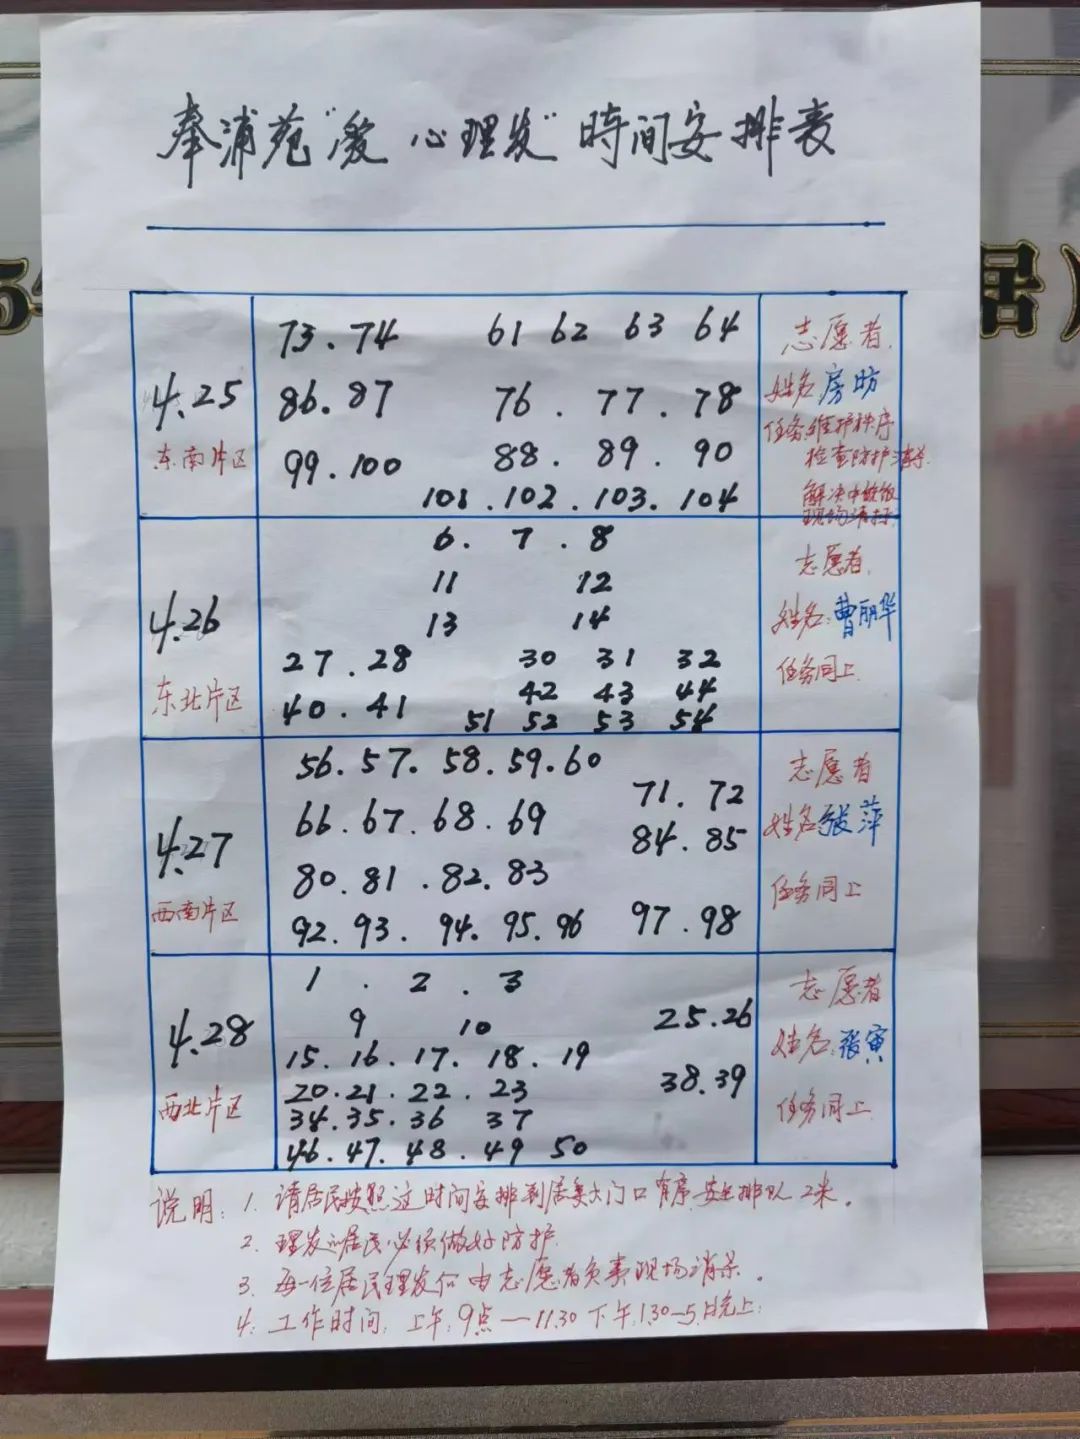 奉浦苑"爱心理发"時间安排表
4.25
东南片区
73.74 61 62 63 64
86.87 76.77.78
99.100 88.89.90
101.102.103.104
志愿者
姓名:房昉
任务:维护秩序
检查防护消杀
解决中饭
现场清扫
4.26
东北片区
6.7.8
11 12
13 14
27.28 30 31 32
40.41 42 43 44
51 52 53 54
志愿者
姓名:曹丽华
任务同上
4.27
西南片区
56.57.58.59.60
71.72
66.67.68.69
84.85
80.81.82.83
92.93.94.95.96 97.98
志愿者
姓名:张萍
任务同上
4.28
西北片区
1.2.3
9 10 25.26
15.16.17.18.19
20.21.22.23 38.39
34.35.36 37
46.47.48.49 50
志愿者
姓名:张寅
任务同上
说明:1.请居民按照这时间安排到居委大门口有序安全排队2米。
2.理发的居民必须做好防护
3.每一位居民理发后由志愿者负责现场消杀。
4.工作时间:上午:9点—11.30下午:1.30—5 晚上:
居)